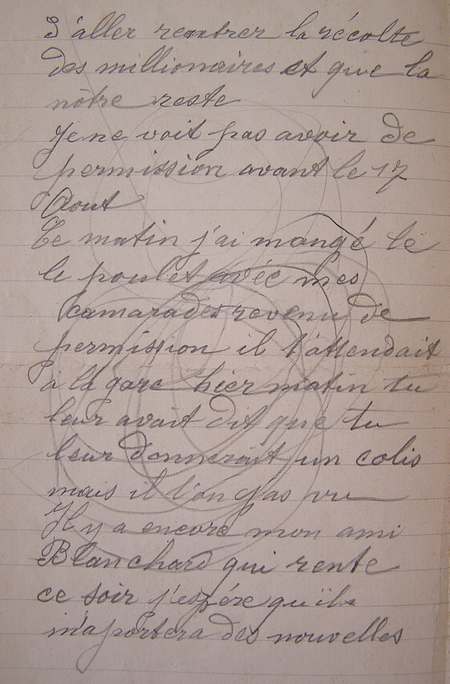 d'aller rentrer la récolte
des millionaires et que la
nôtre reste
Je ne voit pas avoir de
permission avant le 17
Aout
Ce matin j'ai mangé le
le poulet avec mes
camarades revenu de
permission il t'attendait
à la gare hier matin tu
leur avait dit que tu
leur donnerait un colis
mais il l'on pas vu
Il y a encore mon ami
Blanchard qui rente
ce soir j'espére qu'il
m'aportera des nouvelles